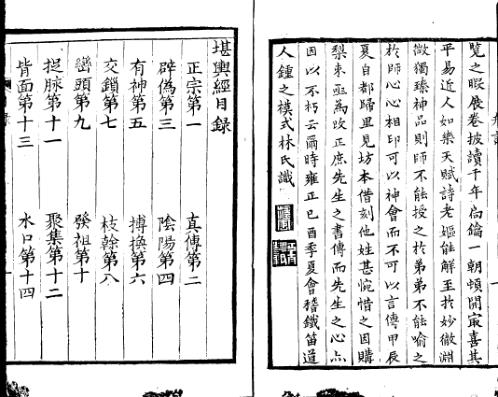 覽之暇展卷披讀千年扃鑰一朝頓開冣喜其
平易近人如樂天賦詩老嫗能解至扵妙徹淵
微獨臻神品則師不能授之扵弟弟不能喻之
扵師心心相印可以神會而不可以言傳甲辰
夏自都歸里見坊本借刻他姓甚惋惜之因購
梨棗亟為改正庶先生之書傳而先生之心亦
因以不朽云爾時雍正己酉季夏會稽鐵笛道
人鍾之模式林氏識
堪輿經目録
正宗第一 真傳第二
辟偽第三 陰陽第四
有神第五 摶換第六
交鎖第七 枝幹第八
巒頭第九 發祖第十
捉脉第十一 聚集第十二
背面第十三 水口第十四